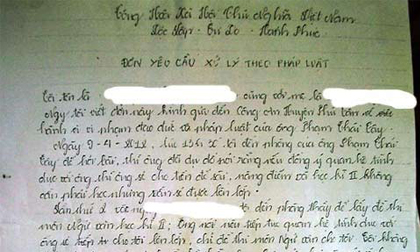 Cộng Hòa Xã Hội Chủ Nghĩa Việt Nam
Độc Lập - Tự Do - Hạnh Phúc
ĐƠN YÊU CẦU XỬ LÝ THEO PHÁP LUẬT
Tôi tên là cùng với mẹ là
Nay tôi viết đơn này kính gửi đến Công an Huyện Phú Tân về việc
hành vi vi phạm đạo đức và pháp luật của ông Phạm Thái
Ngày 9-4- lúc tôi đến phòng của ông Phạm Thái
để hỏi bài, thì ông đã dụ dỗ nói rằng nếu đồng ý quan hệ tình
dục với ông thì ông sẽ cho tiền để sài, nâng điểm cả học kì II không
cần phải học nhưng vẫn sẽ được lên lớp.
Lần thứ 2 vào ngày tôi đến phòng thầy để lấy đề thi
môn học kì II; Ông nói nếu tiếp tục quan hệ tình dục với
ông sẽ tiếp tục cho tôi lên lớp, chỉ đề thi môn Ngữ văn cho tôi. Tôi không